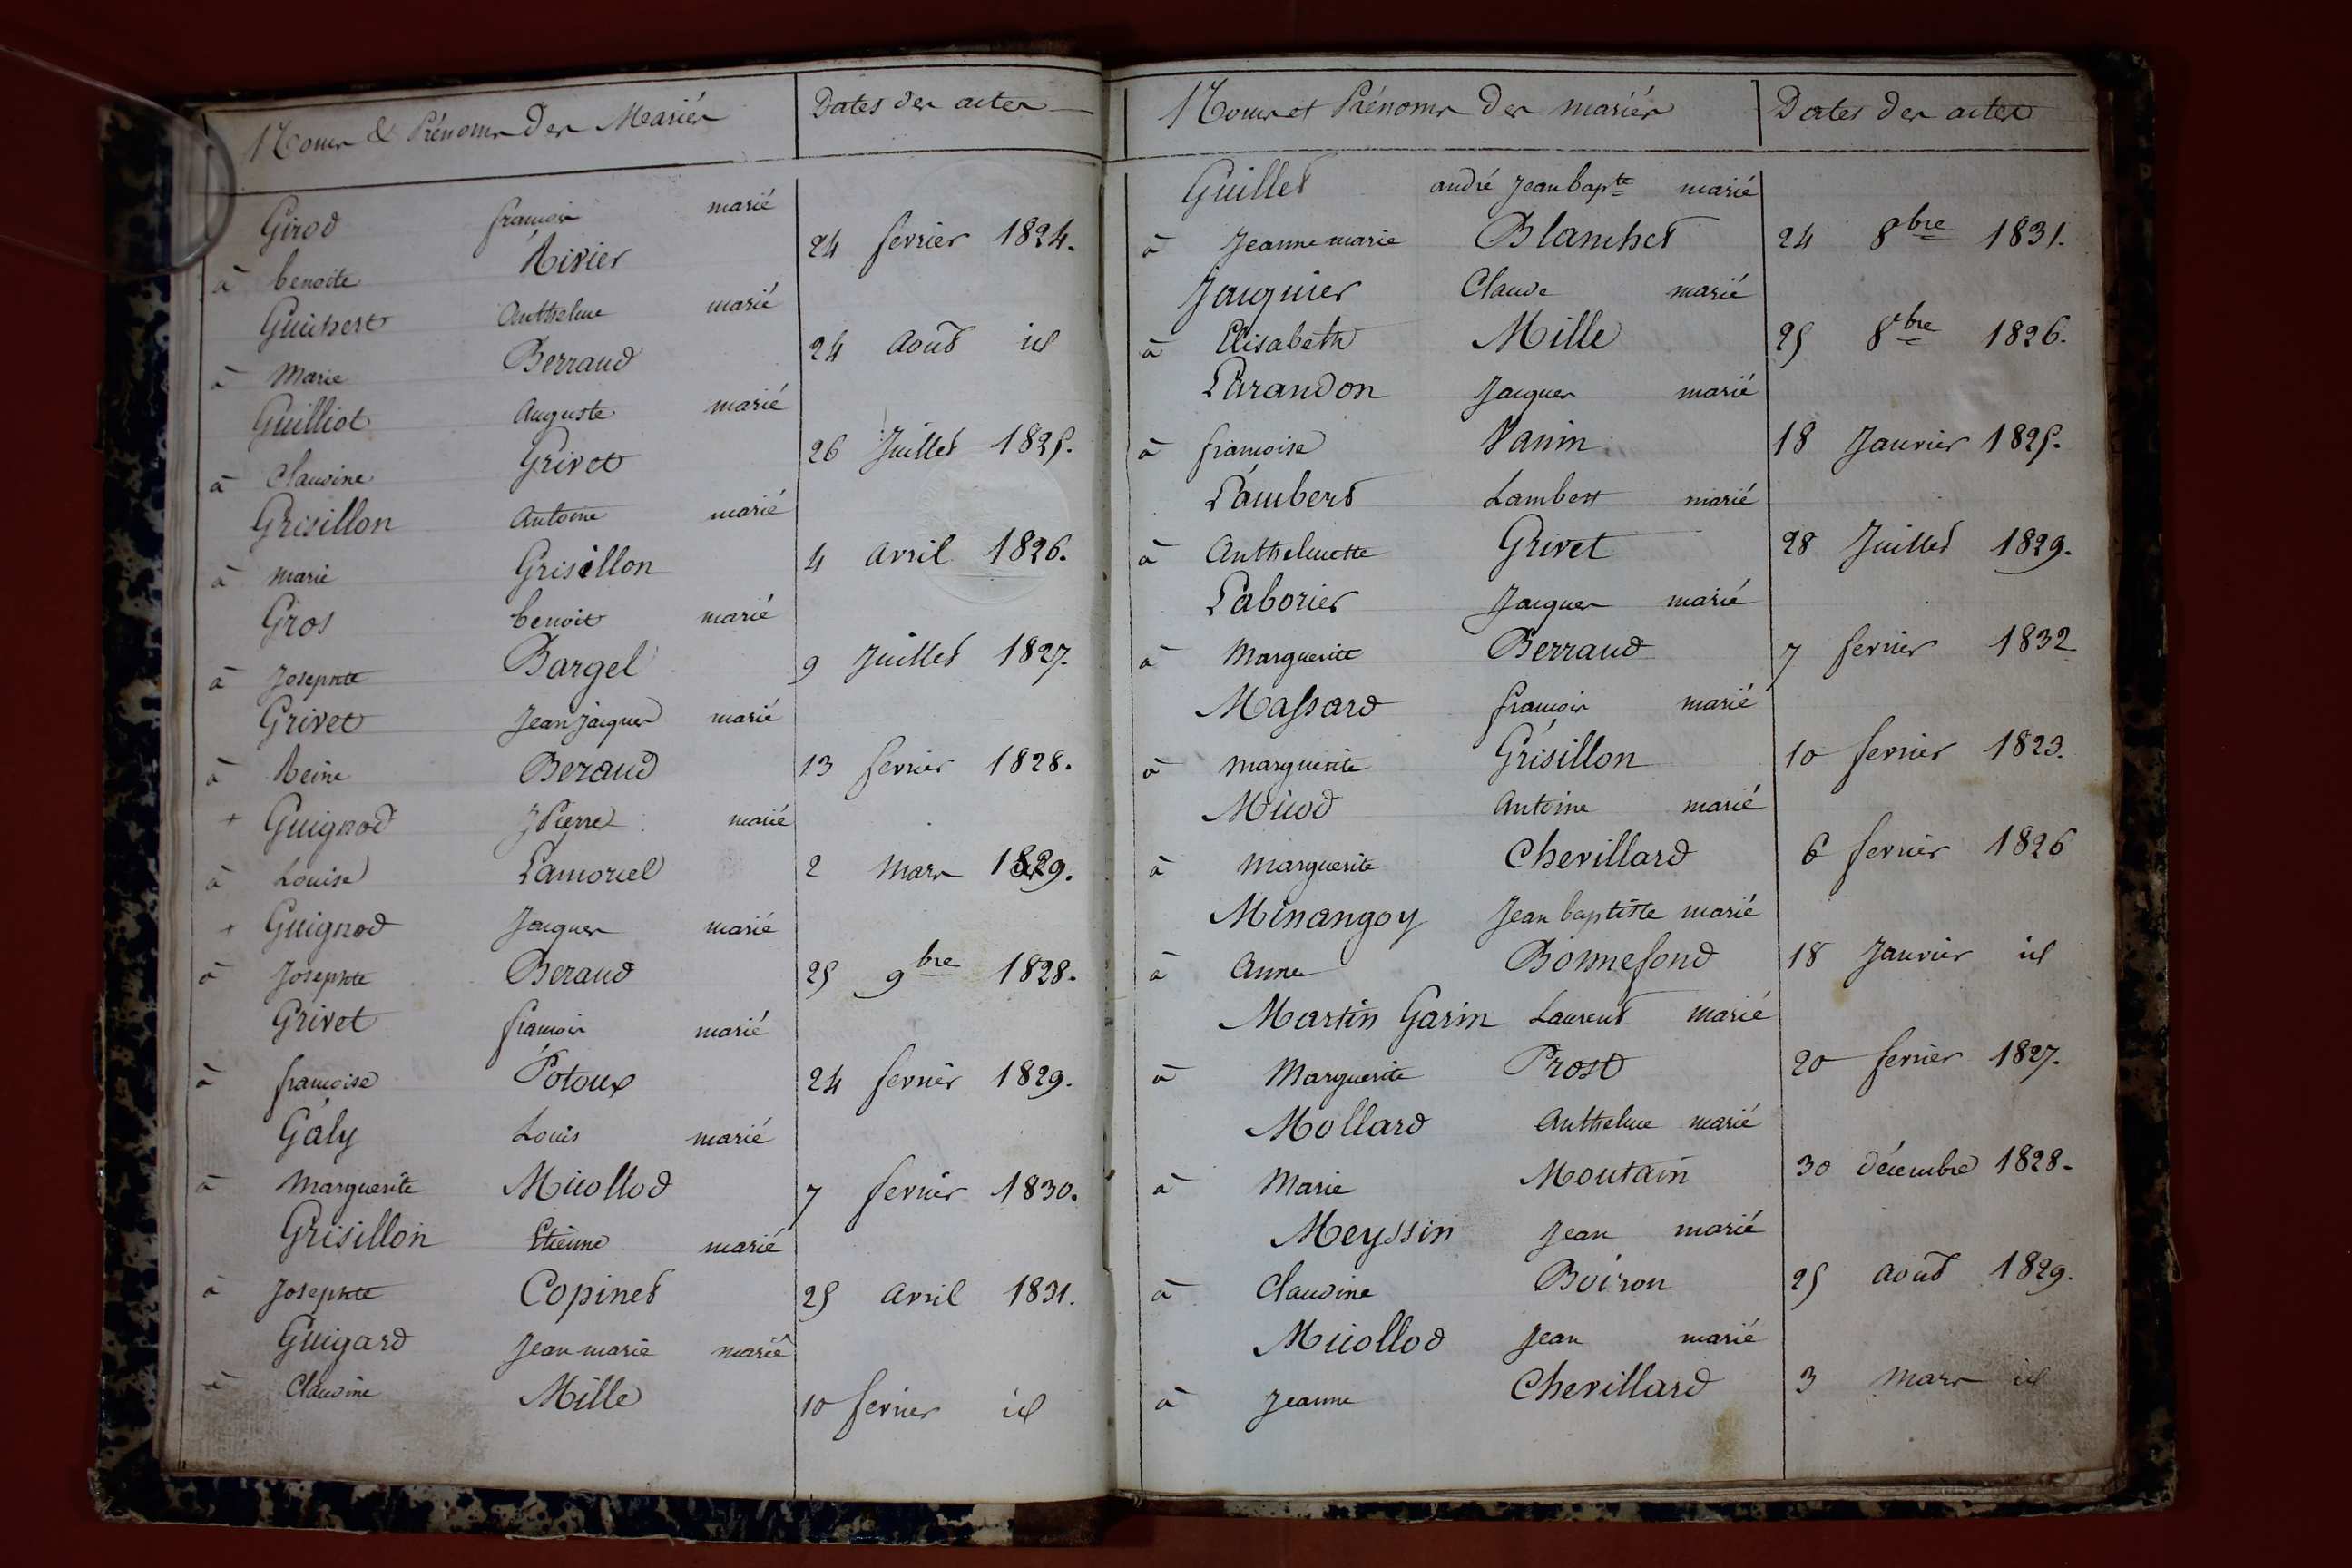 Noms & Prénoms des Mariés Dates des actes
Girod françois marié
à benoite Rivier 24 fevrier 1824.
Guichert Anthelme marié
à Marie Berraud 24 Aout id
Guilliot Auguste marié
à Claudine Grivet 26 Juillet 1825.
Grisillon Antoine marié
à marie Grisillon 4 avril 1826.
Gros benoit marié
à Josephte Bargel 9 Juillet 1827.
Grivet Jean jacques marié
à Reine Beraud 13 fevrier 1828.
+ Guignod J Pierre marié
à Louise Lamoriel 2 Mars 1829.
+ Guignod Jacques marié
à Josephte Beraud 25 9bre 1828.
Grivet françois marié
à françoise Potoux 24 fevrier 1829.
Galy Louis marié
à Marguerite Micollod 7 fevrier 1830.
Grisillon Etienne marié
à Josephte Copinet 25 avril 1831.
Guigard Jean marie marié
à Claudine Mille 10 fevrier id
Noms et Prénoms des mariés Dates des actes
Guillet andré Jean bapte marié
à Jeanne marie Blanchet 24 8bre 1831.
Jauquier Claude marié
à Elisabeth Mille 25 8bre 1826.
Larandon Jacques marié
à françoise Vanin 18 Janvier 1825.
Lambert Lambert marié
à Anthelmette Grivet 28 Juillet 1829.
Laborier Jacques marié
à Marguerite Berraud 7 fevrier 1832
Massard françois marié
à marguerite Grisillon 10 fevrier 1823.
Micod Antoine marié
à marguerite Chevillard 6 fevrier 1826
Minangoy Jean baptiste marié
à Anne Bonnefond 18 Janvier id
Martin Garin Laurent marié
à Marguerite Prost 20 fevrier 1827.
Mollard Anthelme marié
à Marie Moutain 30 décembre 1828.
Meyssin Jean marié
à Claudine Boiron 25 aout 1829.
Micollod Jean marié
à Jeanne Chevillard 3 Mars id